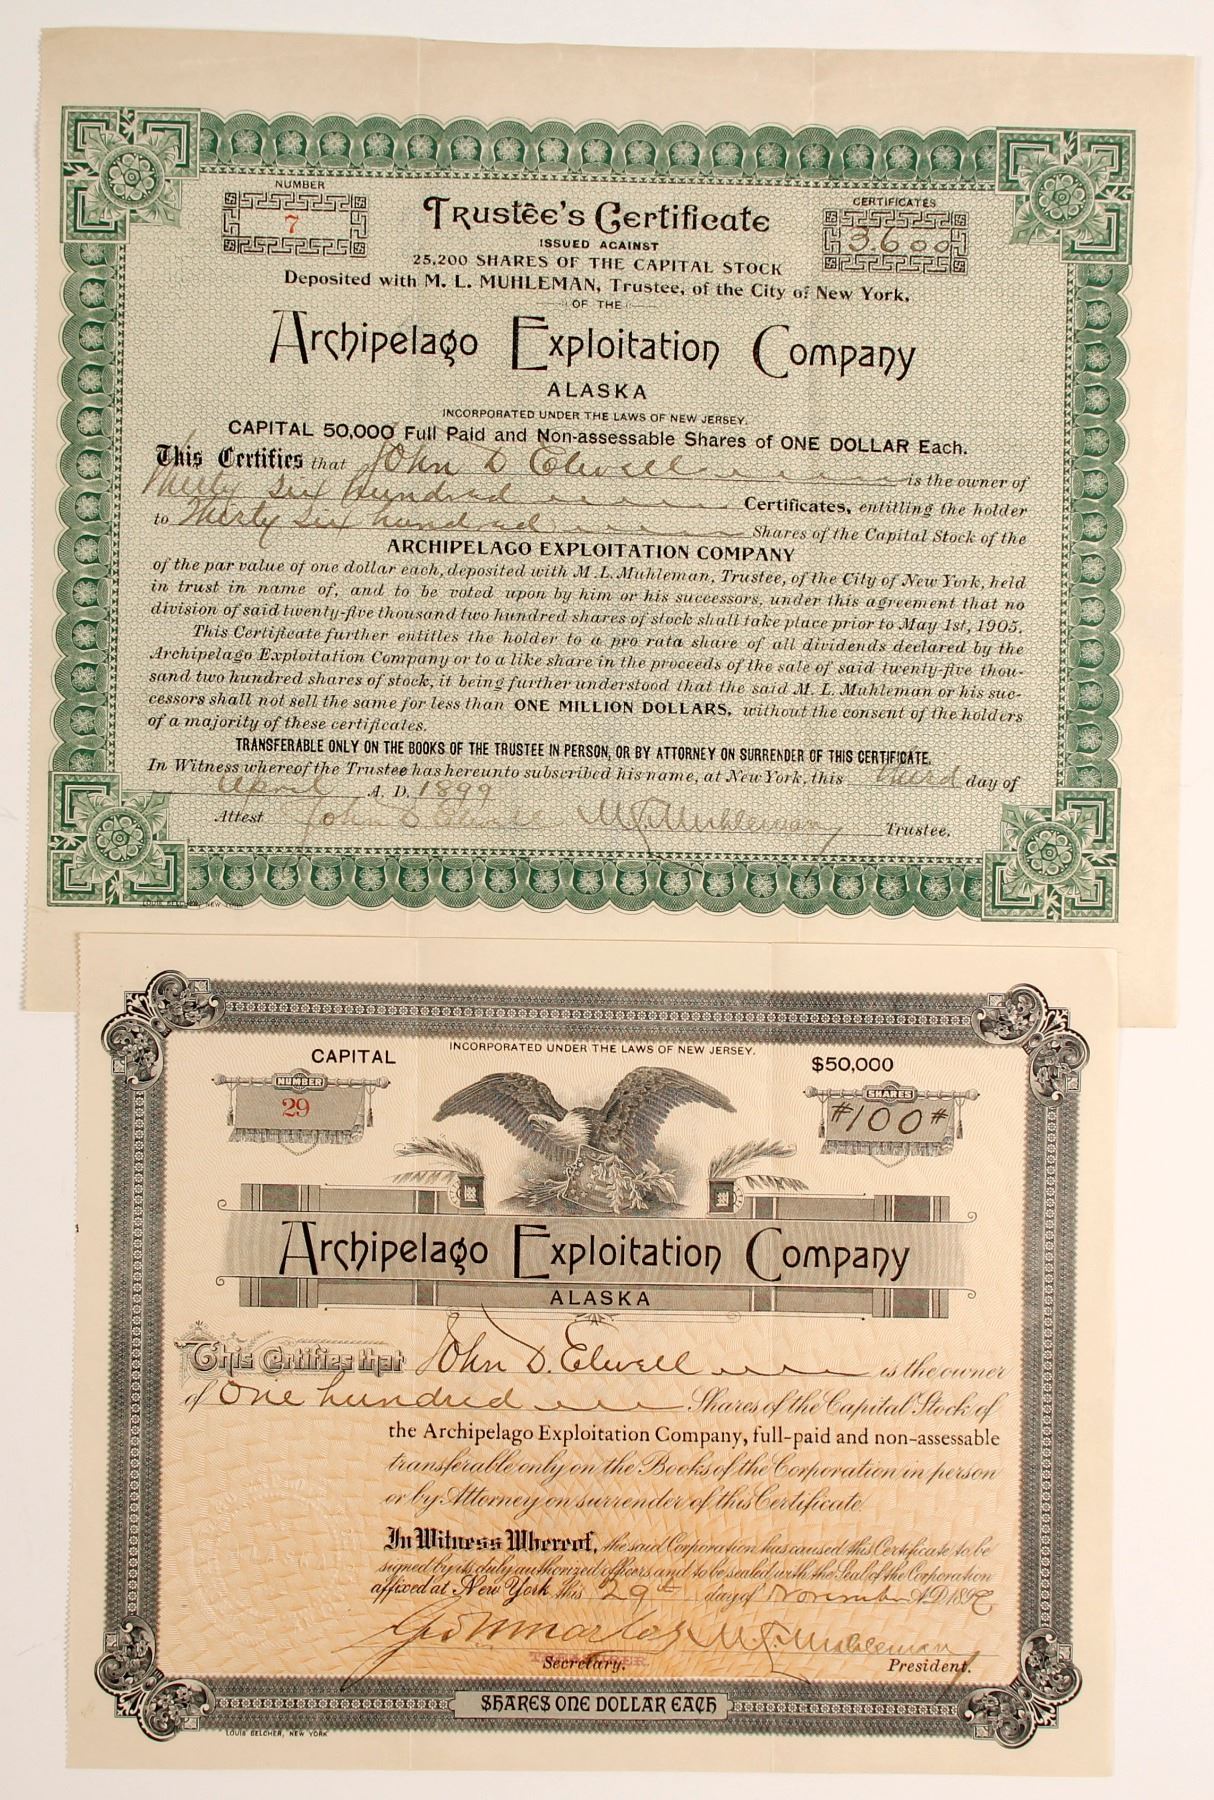 NUMBER
7
Trustêe's Certificate
CERTIFICATES
3.600
ISSUED AGAINST
25,200 SHARES OF THE CAPITAL STOCK
Deposited with M. L. MUHLEMAN, Trustee, of the City of New York,
OF THE
Archipelago Exploitation Company
ALASKA
INCORPORATED UNDER THE LAWS OF NEW JERSEY.
CAPITAL 50,000 Full Paid and Non-assessable Shares of ONE DOLLAR Each.
This Certifies that John D Elwell is the owner of
Thirty six hundred Certificates, entitling the holder
to Thirty six hundred Shares of the Capital Stock of the
ARCHIPELAGO EXPLOITATION COMPANY
of the par value of one dollar each, deposited with M. L. Muhleman, Trustee, of the City of New York, held
in trust in name of, and to be voted upon by him or his successors, under this agreement that no
division of said twenty-five thousand two hundred shares of stock shall take place prior to May 1st, 1905.
This Certificate further entitles the holder to a pro rata share of all dividends declared by the
Archipelago Exploitation Company or to a like share in the proceeds of the sale of said twenty-five thou-
sand two hundred shares of stock, it being further understood that the said M. L. Muhleman or his suc-
cessors shall not sell the same for less than ONE MILLION DOLLARS, without the consent of the holders
of a majority of these certificates.
TRANSFERABLE ONLY ON THE BOOKS OF THE TRUSTEE IN PERSON, OR BY ATTORNEY ON SURRENDER OF THIS CERTIFICATE.
In Witness whereof the Trustee has hereunto subscribed his name, at New York, this third day of
April A. D. 1899
Attest John D Elwell M. L. Muhleman Trustee.
LOUIS BELCHER, NEW YORK
CAPITAL
INCORPORATED UNDER THE LAWS OF NEW JERSEY.
$50,000
NUMBER
29
SHARES
#100#
Archipelago Exploitation Company
ALASKA
This Certifies that John D. Elwell is the owner
of One hundred Shares of the Capital Stock of
the Archipelago Exploitation Company, full-paid and non-assessable
transferable only on the Books of the Corporation in person
or by Attorney on surrender of this Certificate.
In Witness Whereof, the said Corporation has caused this Certificate to be
signed by its duly authorized officers and to be sealed with the Seal of the Corporation
affixed at New York this 29th day of November A.D. 189
M. L. Muhleman
TREASURER.
Secretary. President.
SHARES ONE DOLLAR EACH
LOUIS BELCHER, NEW YORK